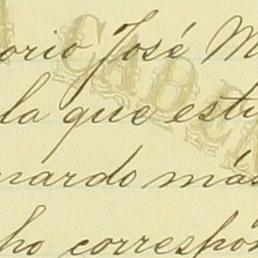 orio José M
la que estu
uardo más
ho correspon